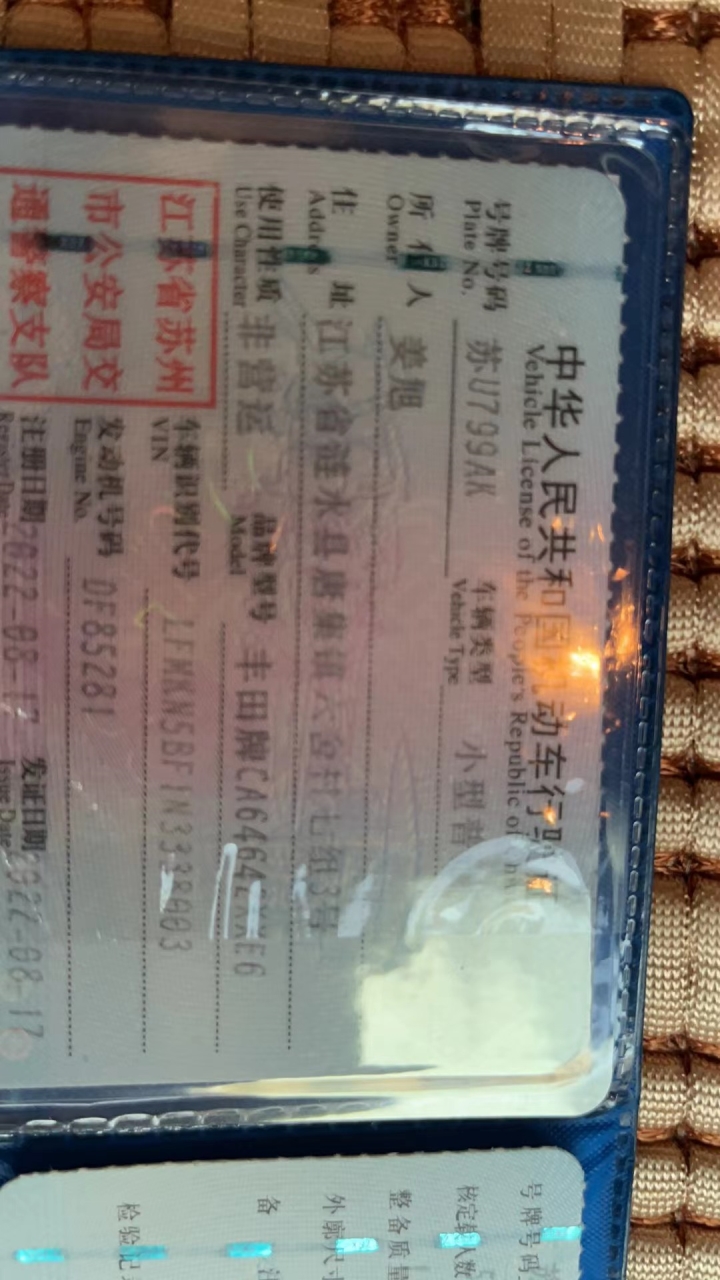 中华人民共和国机动车行驶证
Vehicle License of the People's Republic of China
号牌号码 苏U799AK 车辆类型 小型普
Plate No. Vehicle Type
所有人 姜旭
Owner
住址 江苏省涟水县唐集镇六舍村七组3号
Address
使用性质 非营运 品牌型号 丰田牌
Use Character Model
江苏省苏州
市公安局交
通警察支队
车辆识别代号
VIN
发动机号码 DF85281
Engine No.
注册日期 2022-08-17 发证日期 2022-08-17
Register Date Issue Date
号牌号码
核定载人数
整备质量
外廓尺寸
备注
检验记